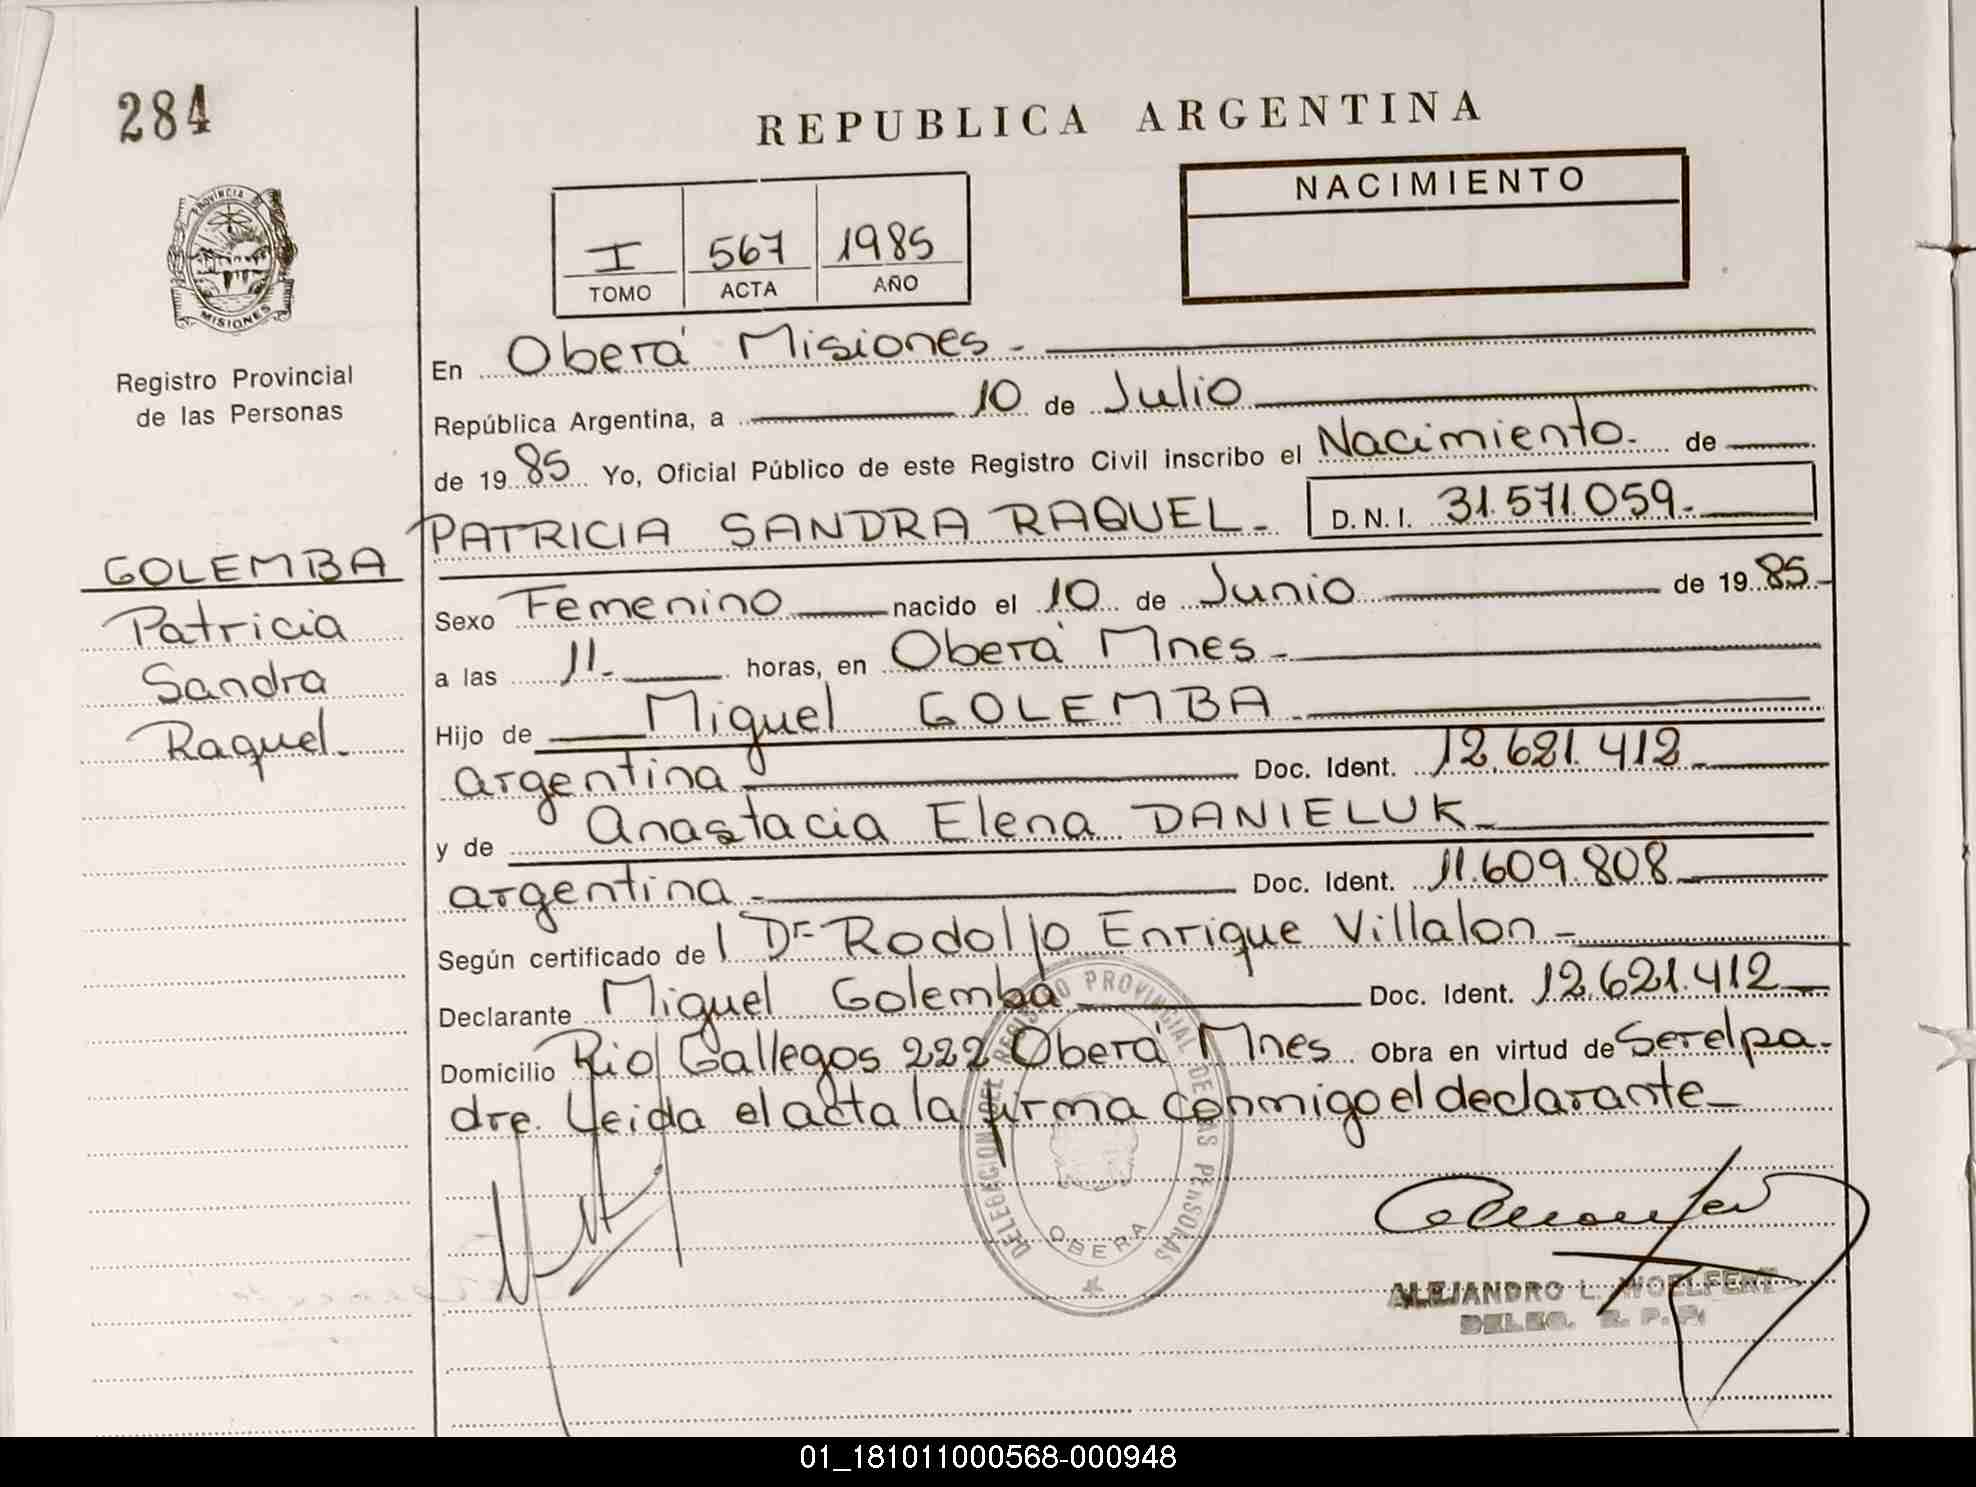 284
REPUBLICA ARGENTINA
NACIMIENTO
I 567 1985
TOMO ACTA AÑO
PROVINCIA DE
MISIONES
Registro Provincial
de las Personas
En Oberá Misiones -
República Argentina, a 10 de Julio
de 19 85 Yo, Oficial Público de este Registro Civil inscribo el Nacimiento. de
PATRICIA SANDRA RAQUEL - D.N.I. 31.571.059.-
GOLEMBA
Patricia
Sandra
Raquel.
Sexo Femenino nacido el 10 de Junio de 19 85-
a las 11.- horas, en Oberá Mnes -
Hijo de Miguel GOLEMBA
argentina Doc. Ident. 12.621.412
y de Anastacia Elena DANIELUK
argentina - Doc. Ident. 11.609.808
Según certificado de l Dr Rodolfo Enrique Villalon -
Declarante Miguel Golemba Doc. Ident. 12.621.412
Domicilio Rio Gallegos 222 Oberá Mnes Obra en virtud de Ser el pa-
dre. Leida el acta la firma conmigo el declarante -
DELEGACION DEL REGISTRO PROVINCIAL DE LAS PERSONAS
OBERA
ALEJANDRO L. WOELFERT
DELEG. R. P. P.
01_181011000568-000948